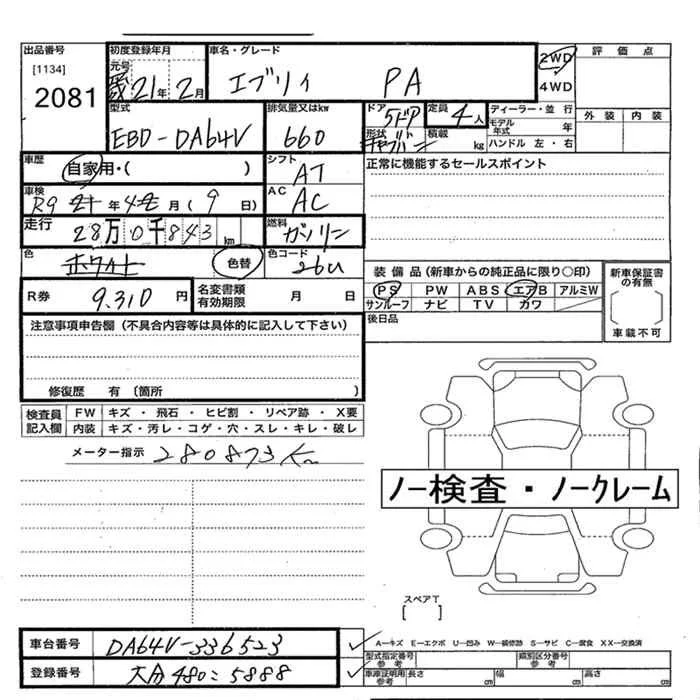 出品番号
[1134]
2081
初度登録年月
元号
21年 2月
車名・グレード
エブリィ PA
2WD
4WD
評価点
外装 内装
型式
EBD-DA64V
排気量又はkw
660
ドア
5ドア
形状
定員
4人
積載 kg
ディーラー・並行
モデル年式 年
ハンドル 左・右
車歴
自家用・( )
シフト
AT
正常に機能するセールスポイント
車検
R9 年 4 月 ( 9 日)
AC
AC
走行
28万0千843km
燃料
ガソリン
色
ホワイト
色替
色コード
26U
装備品(新車からの純正品に限り〇印)
PS PW ABS エアB アルミW
サンルーフ ナビ TV カワ
新車保証書の有無
車載不可
R券
9,310円
名変書類有効期限 月 日
後日品
注意事項申告欄(不具合内容等は具体的に記入して下さい)
修復歴 有 〔箇所 〕
検査員記入欄
FW キズ・飛石・ヒビ割・リペア跡・X要
内装 キズ・汚レ・コゲ・穴・スレ・キレ・破レ
メーター指示 280873Km
ノー検査・ノークレーム
スペアT
[ ]
車台番号 DA64V-336523
登録番号 大分480こ5888
A―キズ E―エクボ U―凹み W―補修跡 S―サビ C―腐食 XX―交換済
型式指定番号 参考
類別区分番号 参考
車庫証明用 参考
長さ cm 幅 cm 高さ cm